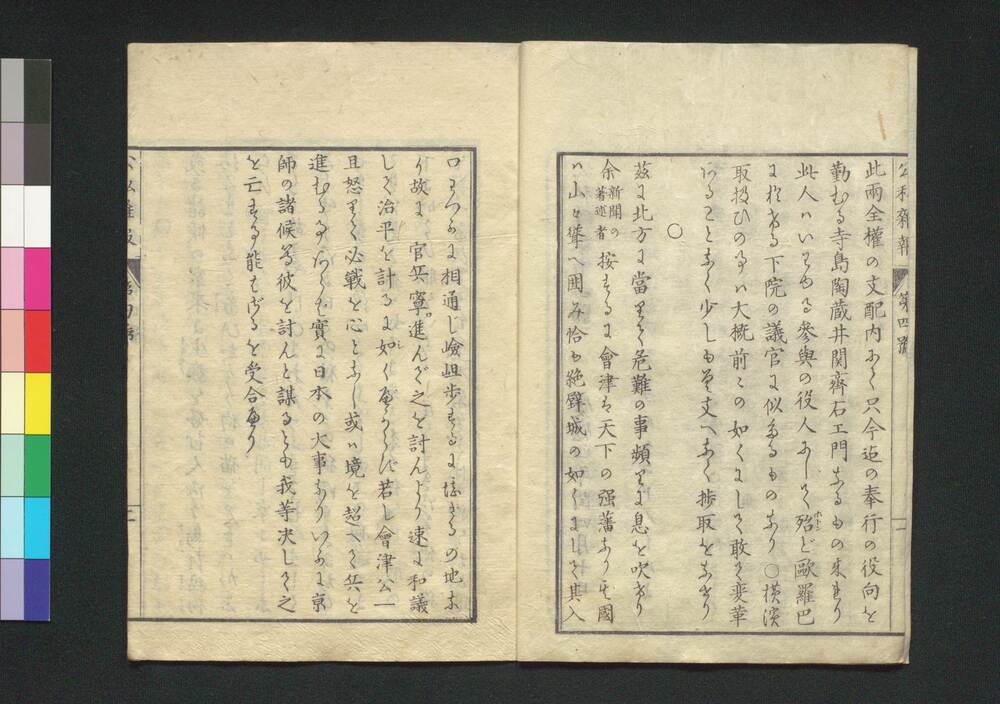 公私雑報 第四號
此兩全權の支配内にて只今迄の奉行の役向を
勤むる寺島陶蔵井関齊右エ門なるもの来れり
此人ハいはゆる參與の役人にして殆ど歐羅巴
ホトン
に於ける下院の議官に似たるものなり〇横濱
取扱ひの事ハ大概前々の如くにして敢て変革
あることなく少しも差支へなく捗取をなせり
〇
茲に北方に當りて危難の事頻りに息を吹けり
余 新聞の著述者 按ずるに會津は天下の强藩なり其國
ハ山を聳へ圍み恰も絶壁城の如くにして其入
口わづかに相通じ嶮岨歩するに堪ざるの地な
り故に官兵寧進んで之を討んより速に和議
して治平を計るに如くべからず若し會津公一
旦怒りて必戰を心とし或ハ境を超へて兵を
進むる事あらば實に日本の大事なりいかに京
師の諸候等彼を討んと謀るとも我等決して之
を亡する能はざるを受合べり
公私雑報 第四號